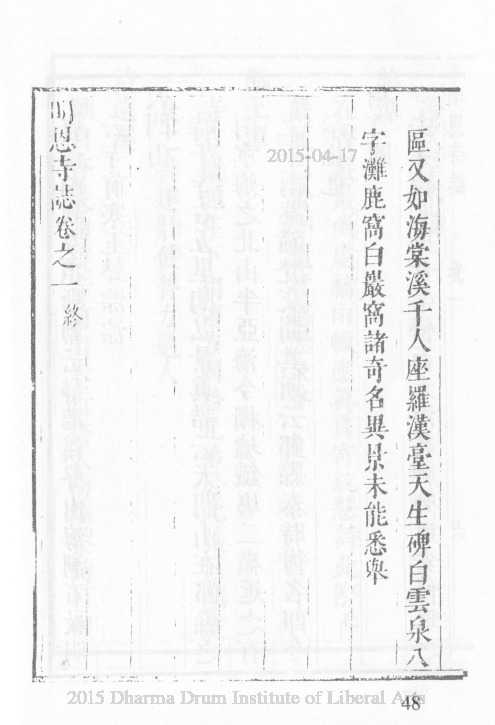 區又如海棠溪千人座羅漢臺天生碑白雲泉八
字灘鹿窩白嚴窩諸奇名異景未能悉舉
明恩寺誌卷之一 終
2015-04-17
2015 Dharma Drum Institute of Liberal Arts
48